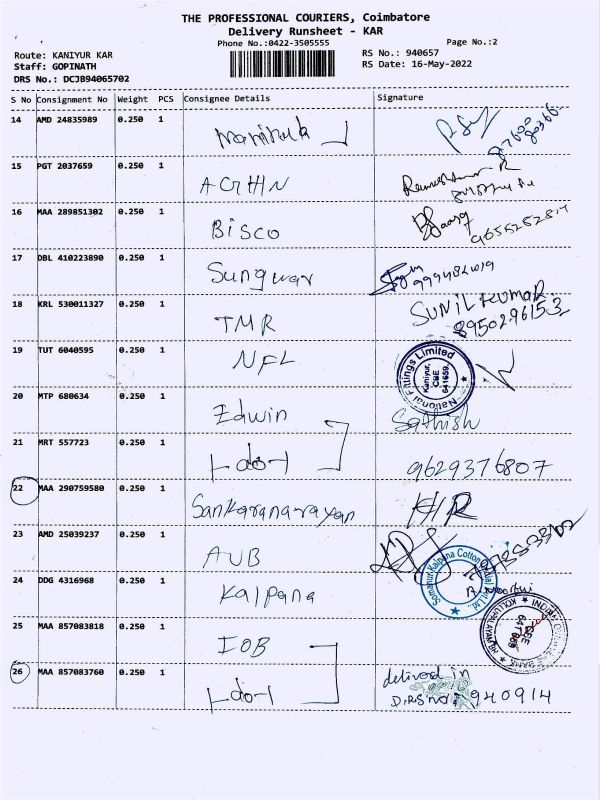 THE PROFESSIONAL COURIERS, Coimbatore
Delivery Runsheet - KAR
Phone No.:0422-3505555
Page No.:2
Route: KANIYUR KAR
RS No.: 940657
Staff: GOPINATH
RS Date: 16-May-2022
DRS No.: DCJB94065702
S No Consignment No Weight PCS Consignee Details Signature
14 AMD 24835989 0.250 1
15 PGT 2037659 0.250 1
16 MAA 289851302 0.250 1 BISCO
17 DBL 410223890 0.250 1 Sungwar
18 KRL 530011327 0.250 1 TMR SUNIL KUMAR
8950296153
19 TUT 6040595 0.250 1 NFL
National Fittings Limited
Kaniyur, CBE 641659.
20 MTP 680634 0.250 1 Edwin Sathish
21 MRT 557723 0.250 1 do 9629376807
22 MAA 290759580 0.250 1 Sankaranarayan
23 AMD 25039237 0.250 1 AUB
24 DDG 4316968 0.250 1 Kalpana
Somanur Kalpana Cotton
25 MAA 857083818 0.250 1 IOB
26 MAA 857083760 0.250 1 do delivered in
DRS no: 940914